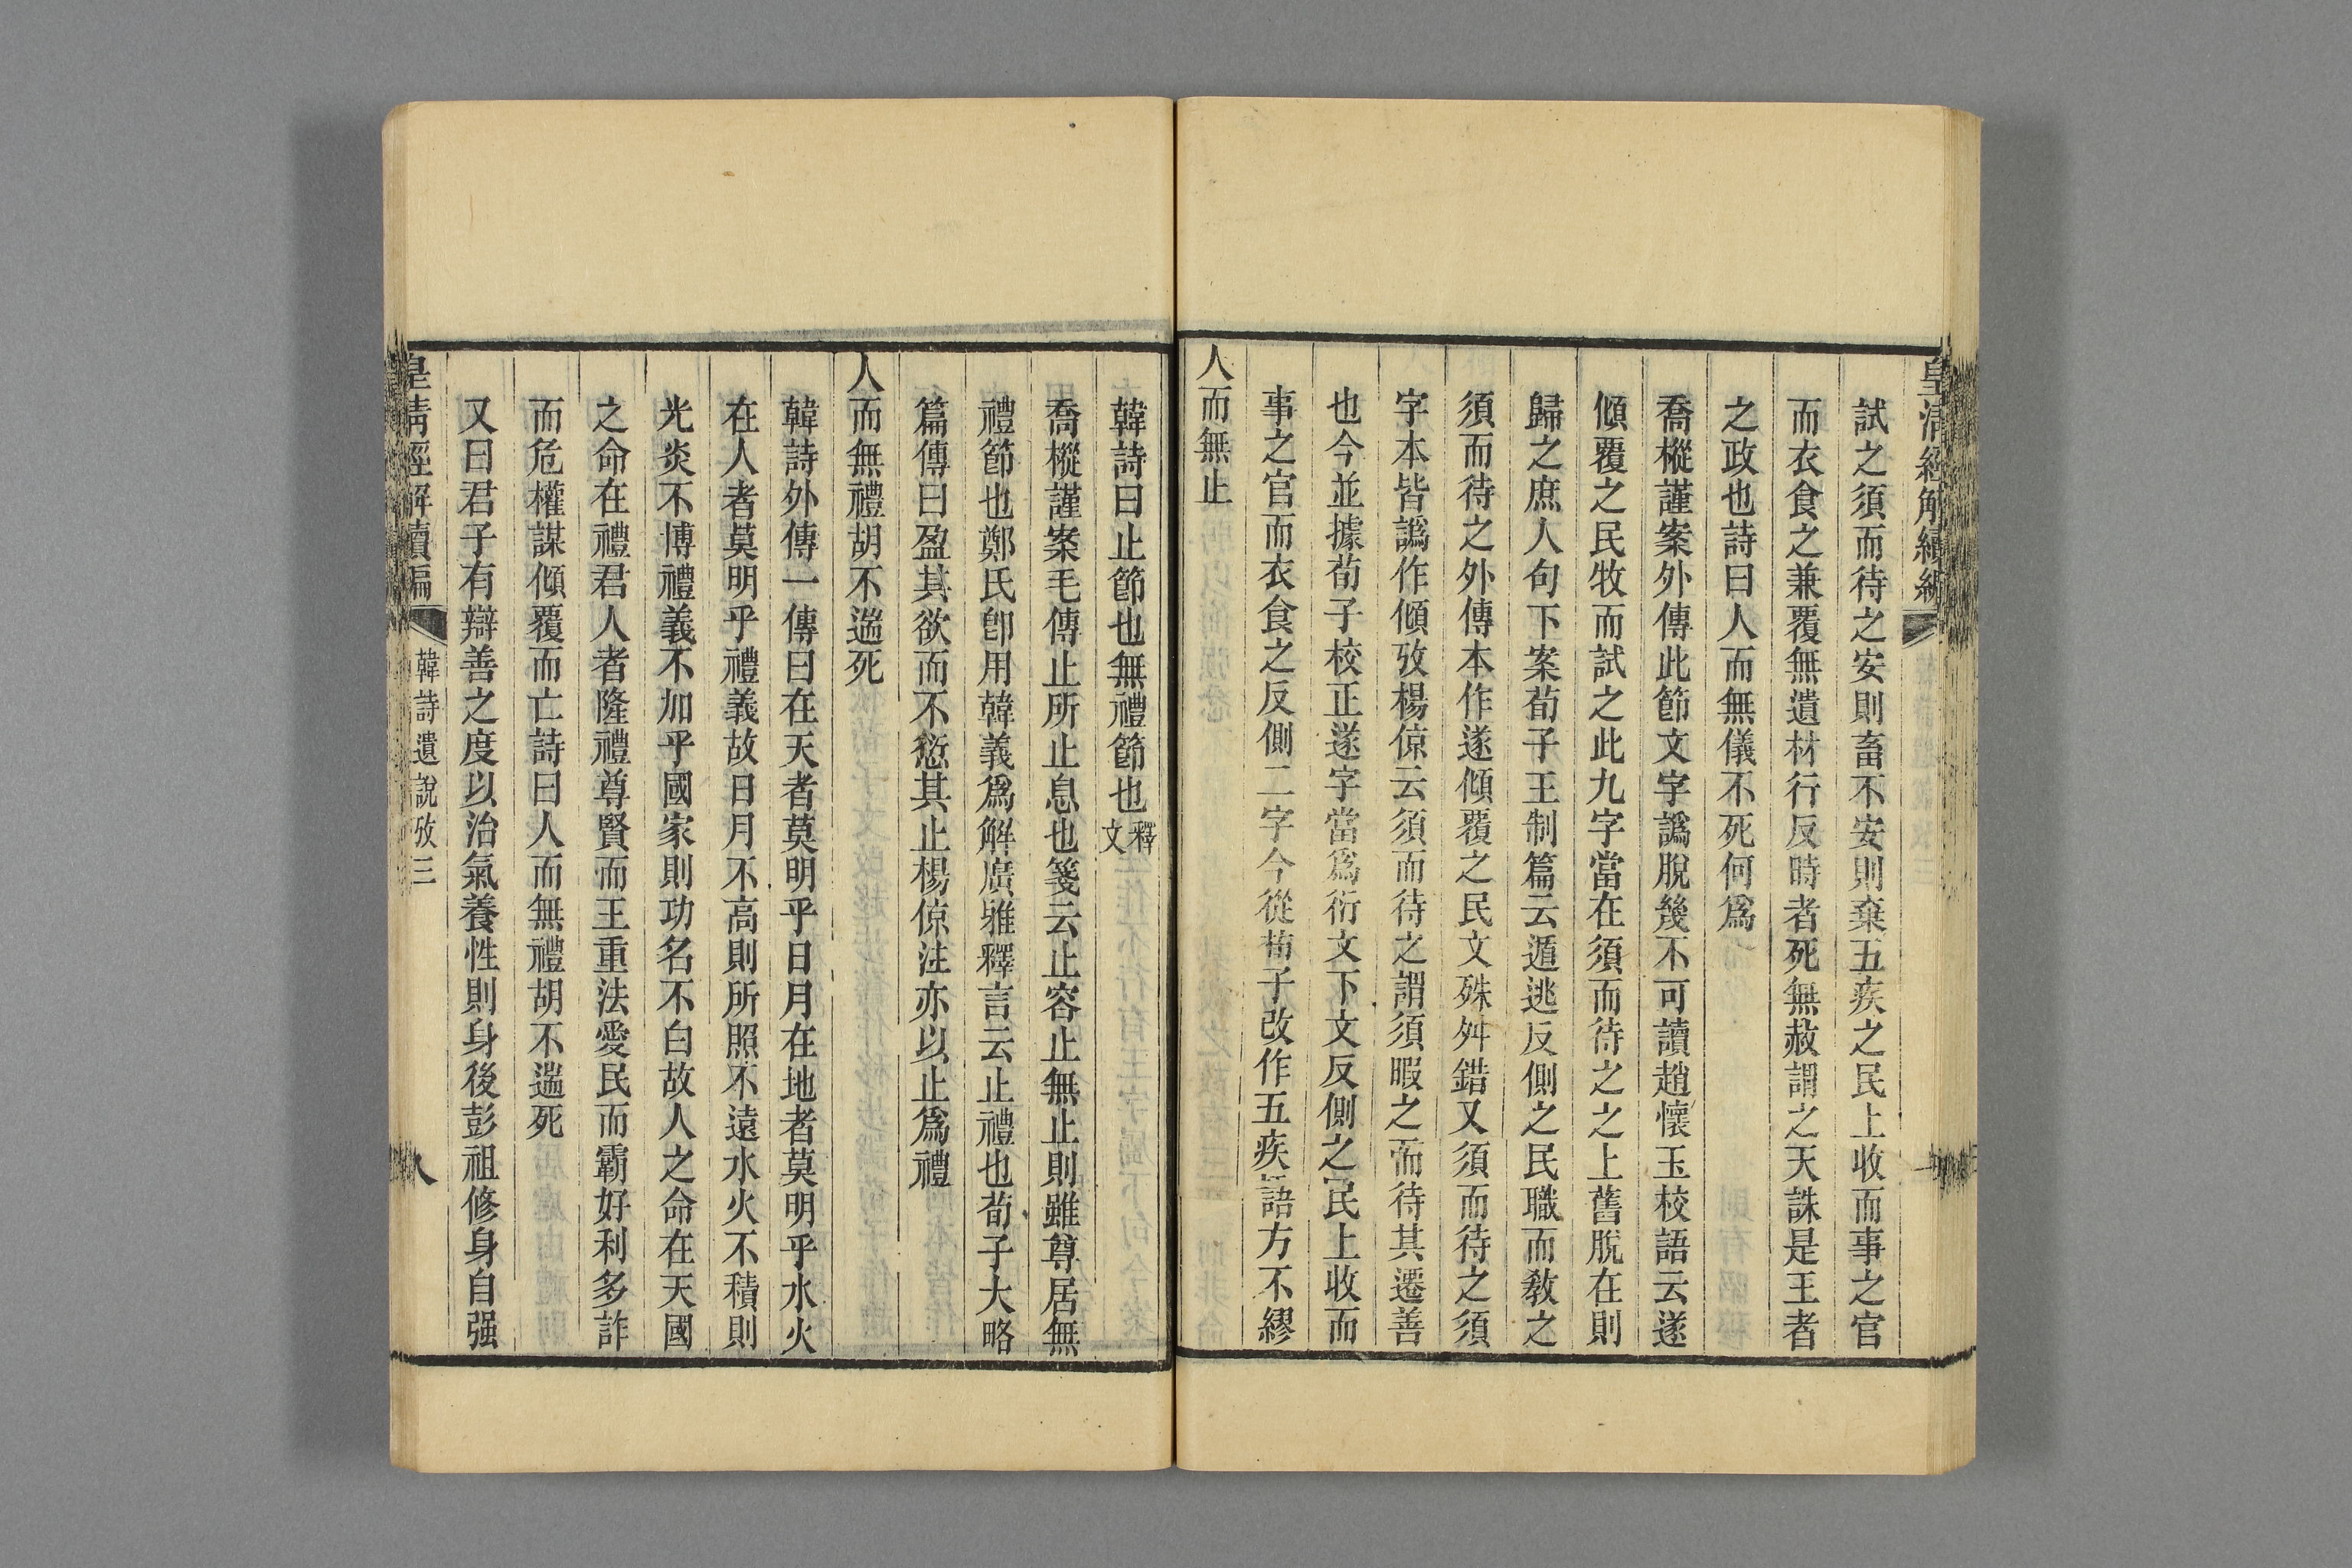 皇清經解續編
試之須而待之安則畜不安則棄五疾之民上收而事之官
而衣食之兼覆無遺材行反時者死無赦謂之天誅是王者
之政也詩曰人而無儀不死何爲
喬樅謹案外傳此節文字譌脫幾不可讀趙懷玉校語云遂
傾覆之民牧而試之此九字當在須而待之之上舊脫在則
歸之庶人句下案荀子王制篇云遁逃反側之民職而敎之
須而待之外傳本作遂傾覆之民文殊舛錯又須而待之須
字本皆譌作傾攷楊倞云須而待之謂須暇之而待其遷善
也今並據荀子校正遂字當爲衍文下文反側之民上收而
事之官而衣食之反側二字今從荀子改作五疾語方不繆
人而無止
韓詩曰止節也無禮節也釋文
喬樅謹案毛傳止所止息也箋云止容止無止則雖尊居無
禮節也鄭氏卽用韓義爲解廣雅釋言云止禮也荀子大略
篇傳曰盈其欲而不愆其止楊倞注亦以止爲禮
人而無禮胡不遄死
韓詩外傳一傳曰在天者莫明乎日月在地者莫明乎水火
在人者莫明乎禮義故日月不高則所照不遠水火不積則
光炎不博禮義不加乎國家則功名不白故人之命在天國
之命在禮君人者隆禮尊賢而王重法愛民而霸好利多詐
而危權謀傾覆而亡詩曰人而無禮胡不遄死
又曰君子有辯善之度以治氣養性則身後彭祖修身自强
皇清經解續編
韓詩遺說攷三
八